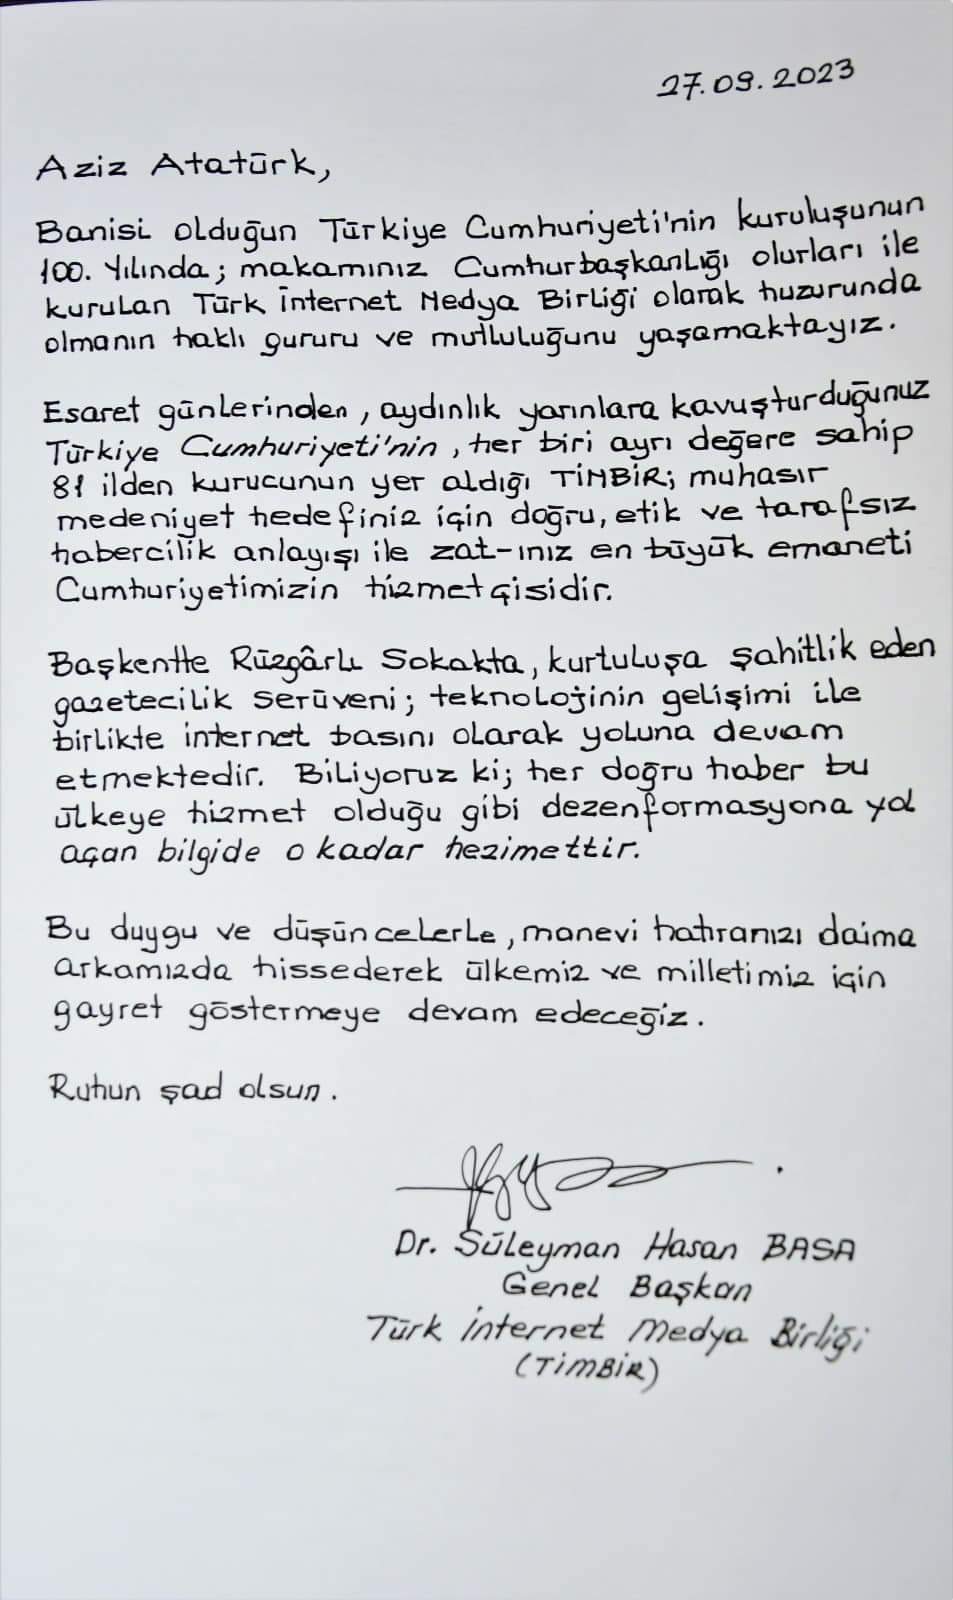 27.09.2023
Aziz Atatürk,
Banisi olduğun Türkiye Cumhuriyeti'nin kuruluşunun
100. Yılında; makamınız Cumhurbaşkanlığı olurları ile
kurulan Türk İnternet Medya Birliği olarak huzurunda
olmanın haklı gururu ve mutluluğunu yaşamaktayız.
Esaret günlerinden, aydınlık yarınlara kavuşturduğunuz
Türkiye Cumhuriyeti'nin, her biri ayrı değere sahip
81 ilden kurucunun yer aldığı TİMBİR; muhasır
medeniyet hedefiniz için doğru, etik ve tarafsız
habercilik anlayışı ile zat-ınız en büyük emaneti
Cumhuriyetimizin hizmetçisidir.
Başkentte Rüzgârlı Sokakta, kurtuluşa şahitlik eden
gazetecilik serüveni; teknolojinin gelişimi ile
birlikte internet basını olarak yoluna devam
etmektedir. Biliyoruz ki; her doğru haber bu
ülkeye hizmet olduğu gibi dezenformasyona yol
açan bilgide o kadar hezimettir.
Bu duygu ve düşüncelerle, manevi hatıranızı daima
arkamızda hissederek ülkemiz ve milletimiz için
gayret göstermeye devam edeceğiz.
Ruhun şad olsun.
Dr. Süleyman Hasan BASA
Genel Başkan
Türk İnternet Medya Birliği
(TİMBİR)